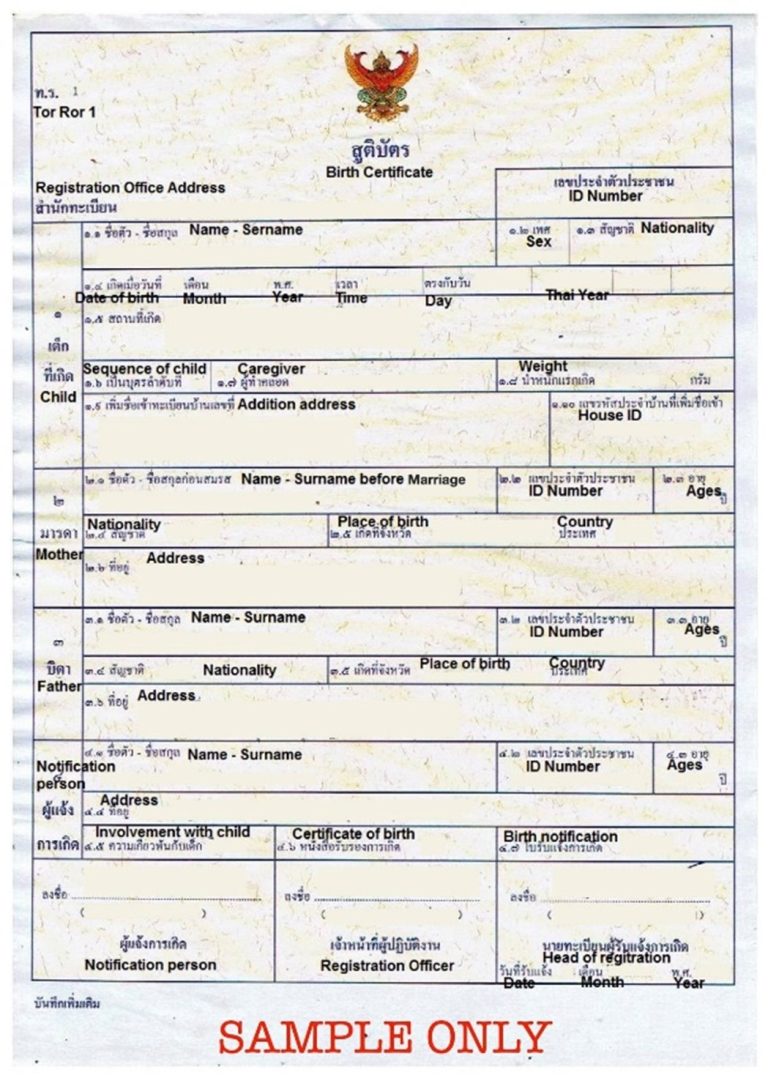 ท.ร. 1
Tor Ror 1
สูติบัตร
Birth Certificate
Registration Office Address
สำนักทะเบียน
เลขประจำตัวประชาชน
ID Number
๑.๑ ชื่อตัว - ชื่อสกุล Name - Sername
๑.๒ เพศ
Sex
๑.๓ สัญชาติ Nationality
๑.๔ เกิดเมื่อวันที่ เดือน พ.ศ. เวลา ตรงกับวัน
Date of birth Month Year Time Day Thai Year
๑.๕ สถานที่เกิด
๑
เด็ก
ที่เกิด
Child
Sequence of child Caregiver Weight
๑.๖ เป็นบุตรลำดับที่ ๑.๗ ผู้ทำคลอด ๑.๘ น้ำหนักแรกเกิด กรัม
๑.๙ เพิ่มชื่อเข้าทะเบียนบ้านเลขที่ Addition address
๑.๑๐ เลขรหัสประจำบ้านที่เพิ่มชื่อเข้า
House ID
๒
มารดา
Mother
๒.๑ ชื่อตัว - ชื่อสกุลก่อนสมรส Name - Surname before Marriage
๒.๒ เลขประจำตัวประชาชน
ID Number
๒.๓ อายุ
Ages
ปี
Nationality Place of birth Country
๒.๔ สัญชาติ ๒.๕ เกิดที่จังหวัด ประเทศ
Address
๒.๖ ที่อยู่
๓
บิดา
Father
๓.๑ ชื่อตัว - ชื่อสกุล Name - Surname
๓.๒ เลขประจำตัวประชาชน
ID Number
๓.๓ อายุ
Ages
ปี
๓.๔ สัญชาติ Nationality ๓.๕ เกิดที่จังหวัด Place of birth Country
ประเทศ
๓.๖ ที่อยู่ Address
Notification
person
ผู้แจ้ง
การเกิด
๔.๑ ชื่อตัว - ชื่อสกุล Name - Surname
๔.๒ เลขประจำตัวประชาชน
ID Number
๔.๓ อายุ
Ages
ปี
Address
๔.๔ ที่อยู่
Involvement with child Certificate of birth Birth notification
๔.๕ ความเกี่ยวพันกับเด็ก ๔.๖ หนังสือรับรองการเกิด ๔.๗ ใบรับแจ้งการเกิด
ลงชื่อ ลงชื่อ ลงชื่อ
( ) ( ) ( )
ผู้แจ้งการเกิด เจ้าหน้าที่ผู้ปฏิบัติงาน นายทะเบียนผู้รับแจ้งการเกิด
Notification person Registration Officer Head of regitration
วันที่รับแจ้ง เดือน พ.ศ.
Date Month Year
บันทึกเพิ่มเติม
SAMPLE ONLY